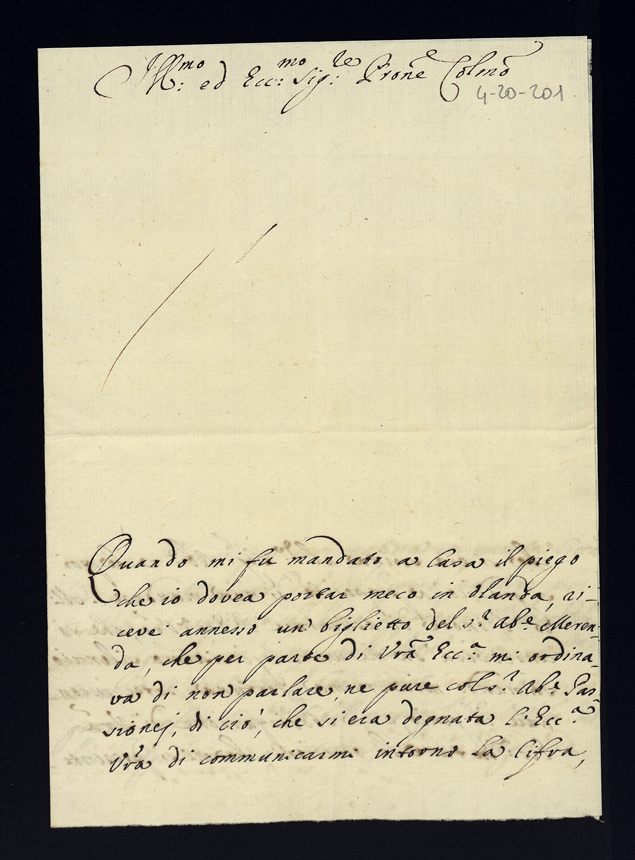 Ill.mo ed Ecc.mo Sig.re Prone Colmo
4-20-201
Quando mi fu mandato a Casa il piego
che io dovea portar meco in Olanda, ri-
ceve annesso un biglietto del s.r Ab.e Meren-
da, che per parte di Vrã Ecc.a mi ordina-
va di non parlare, ne pure col s.r Ab.e Pas-
sionej, di ciò, che si era degnata l'Ecc.a
Vrã di communicarmi intorno la Cifra,